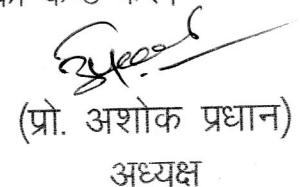 (प्रो. अशोक प्रधान)
अध्यक्ष